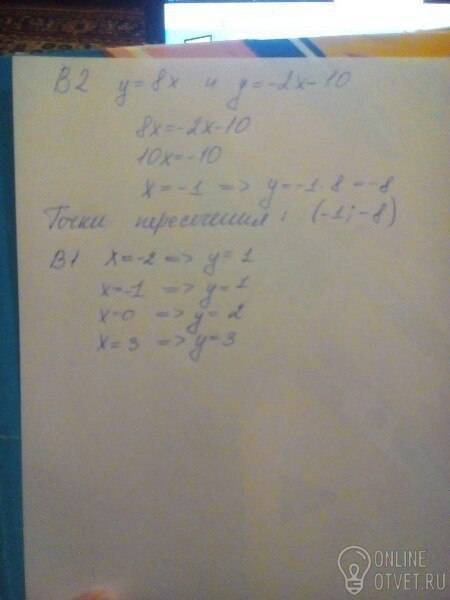 B2 y=8x и y=-2x-10
8x=-2x-10
10x=-10
x=-1 => y=-1·8=-8
Точки пересечения: (-1;-8)
B1 x=-2 => y=1
x=-1 => y=1
x=0 => y=2
x=3 => y=3
ONLINE
OTVET.RU